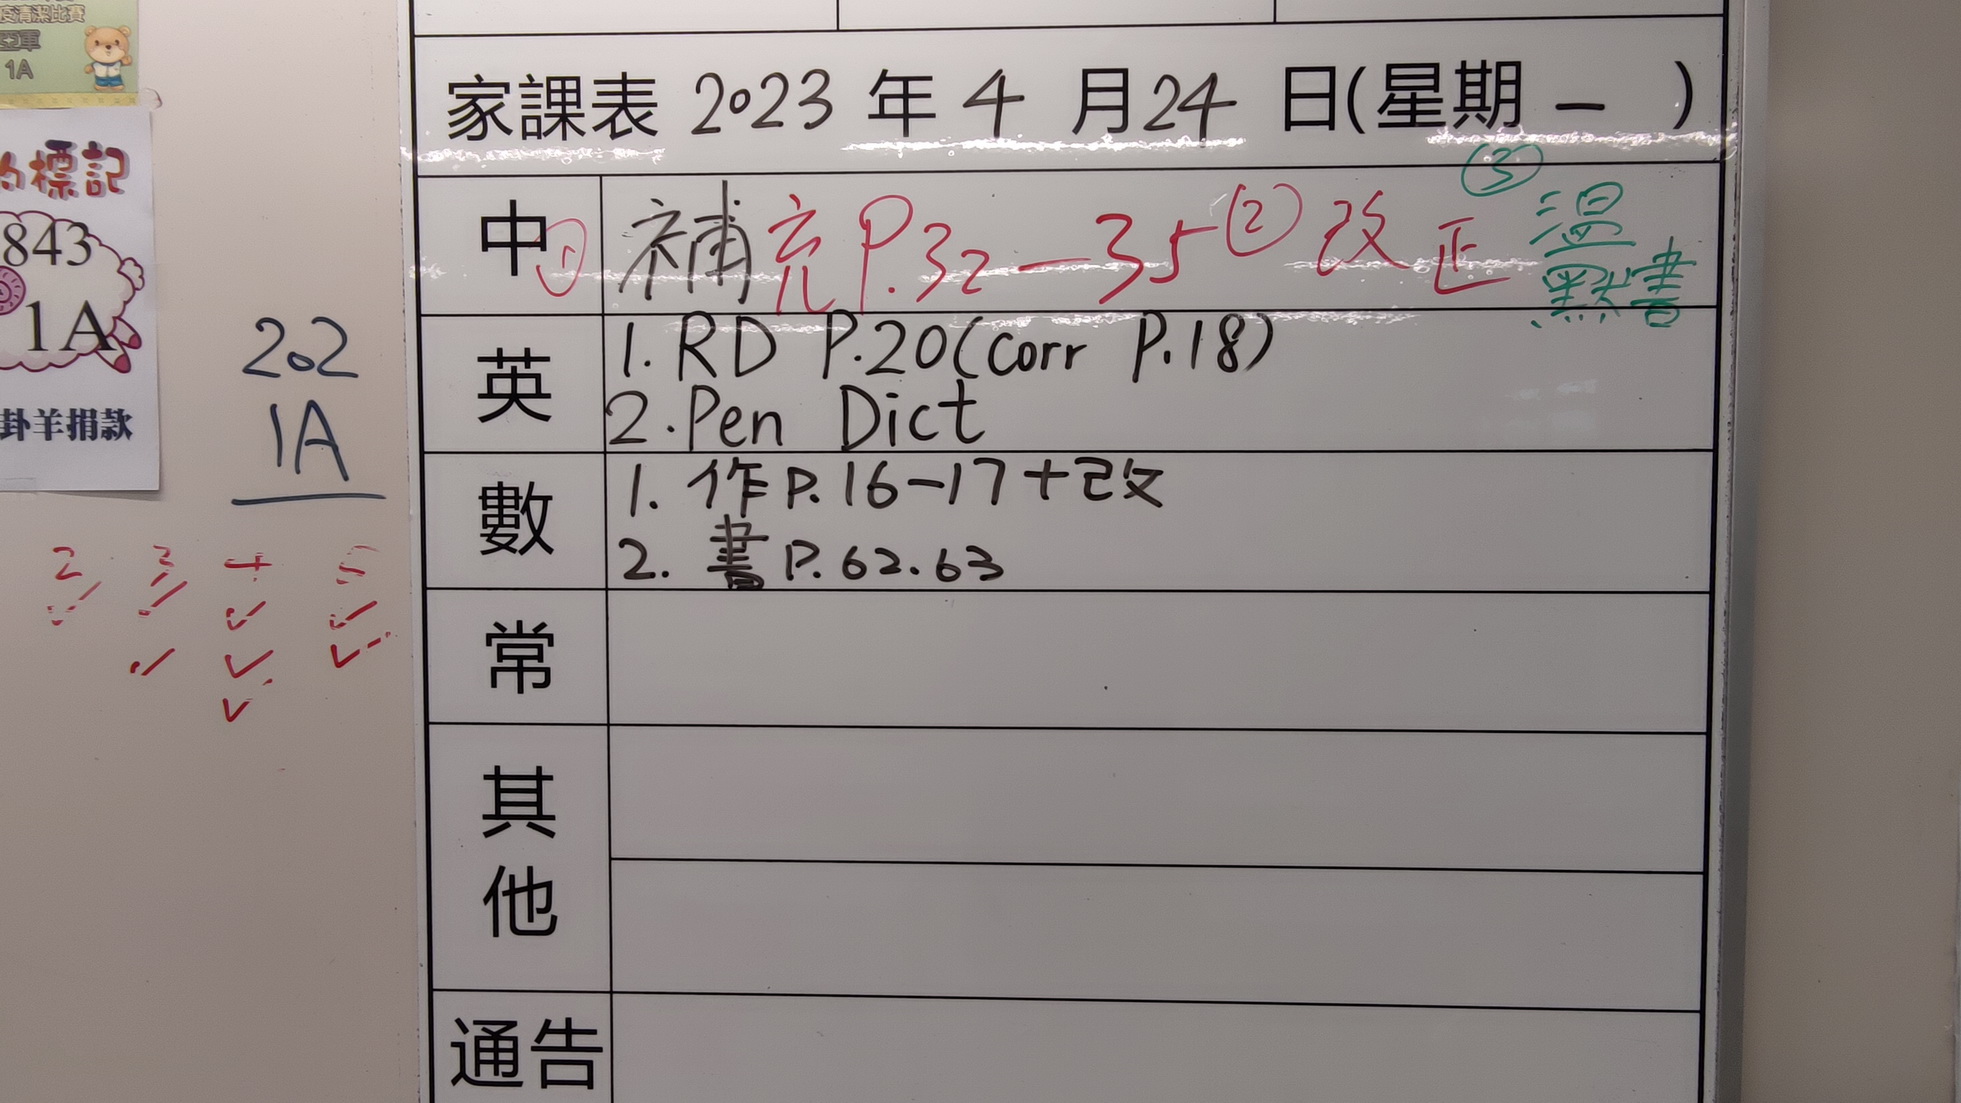 疫清潔比賽
亞軍
1A
的標記
843
1A
卦羊捐款
202
1A
2 3 4 5
家課表 2023 年 4 月 24 日(星期 一 )
中 ① 補充 P.32—35 ② 改正 ③ 温默書
英 1. RD P.20(corr P.18)
2. Pen Dict
數 1. 作 P.16-17+改
2. 書 P.62.63
常
其他
通告